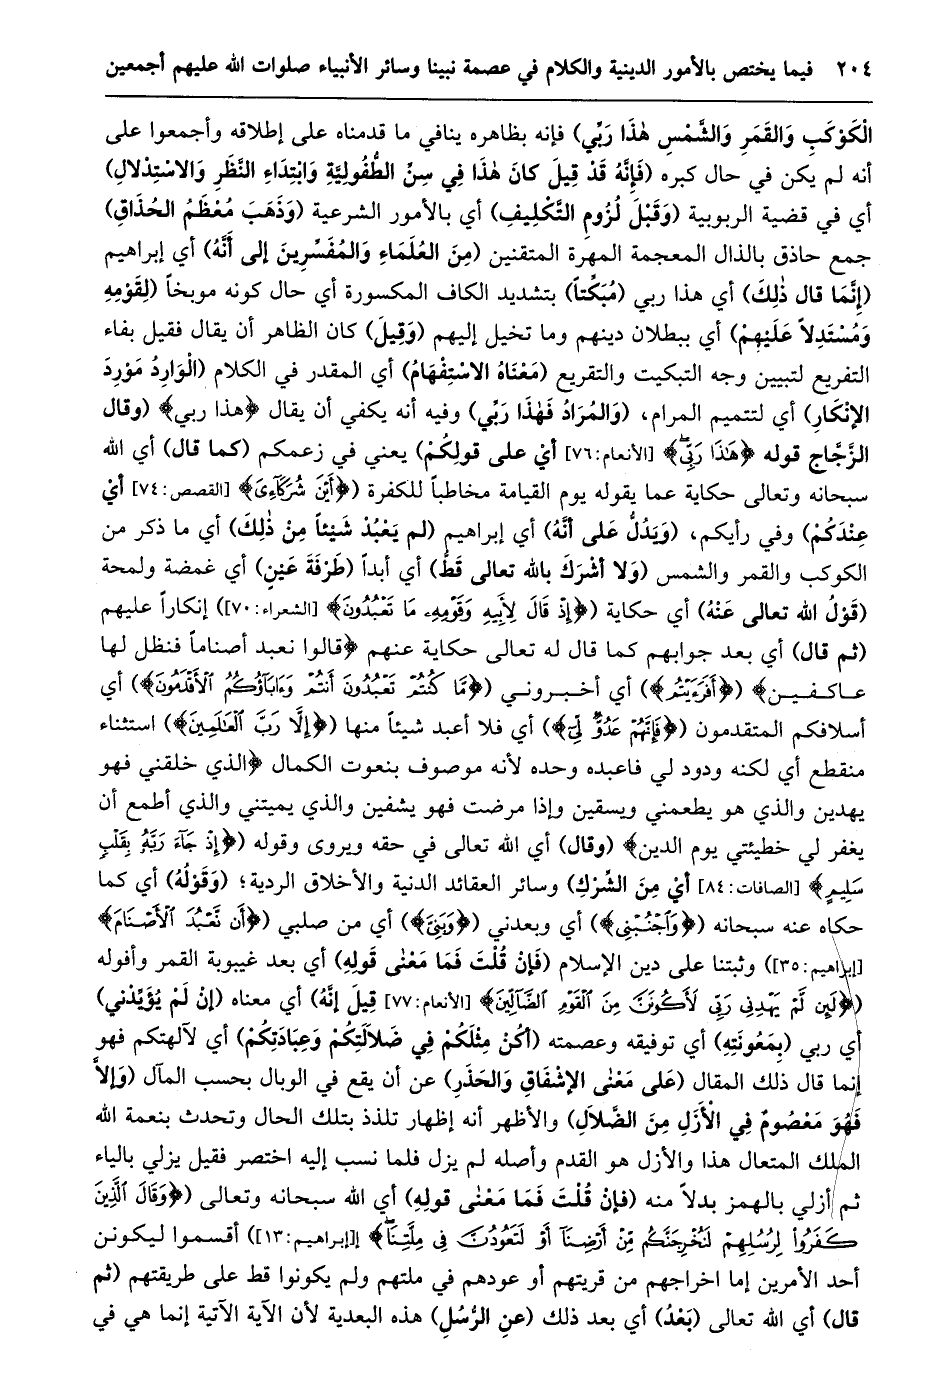 ٢٠٤ فيما يختص بالأمور الدينية والكلام في عصمة نبينا وسائر الأنبياء صلوات الله عليهم أجمعين
الْكَوْكَبِ وَالقَمَرِ وَالشَّمْسِ هٰذَا رَبِّي) فإنه بظاهره ينافي ما قدمناه على إطلاقه وأجمعوا على
أنه لم يكن في حال كبره (فَإِنَّهُ قَدْ قِيلَ كانَ هٰذَا فِي سِنِّ الطُّفُولِيَّةِ وَابْتِدَاءِ النَّظَرِ وَالاسْتِدْلالِ)
أي في قضية الربوبية (وَقَبْلَ لُزومِ التَّكْلِيفِ) أي بالأمور الشرعية (وَذَهَبَ مُعْظَمُ الحُذاقِ)
جمع حاذق بالذال المعجمة المهرة المتقنين (مِنَ العُلَمَاءِ وَالمُفَسِّرِينَ إلى أَنَّهُ) أي إبراهيم
(إِنَّمَا قال ذٰلِكَ) أي هذا ربي (مُبَكِّتاً) بتشديد الكاف المكسورة أي حال كونه موبخاً (لِقَوْمِهِ
وَمُسْتَدِلاً عَلَيْهِمْ) أي ببطلان دينهم وما تخيل إليهم (وَقِيلَ) كان الظاهر أن يقال فقيل بفاء
التفريع لتبيين وجه التبكيت والتقريع (مَعْنَاهُ الاسْتِفْهَامُ) أي المقدر في الكلام (الْوَارِدُ مَوْرِدَ
الإِنْكَارِ) أي لتتميم المرام، (وَالمُرَادُ فَهٰذَا رَبِّي) وفيه أنه يكفي أن يقال ﴿هذا ربي﴾ (وقال
الزَّجَّاج قوله ﴿هَٰذَا رَبِّيۖ﴾ [الأنعام:٧٦] أيْ على قولِكُمْ) يعني في زعمكم (كما قال) أي الله
سبحانه وتعالى حكاية عما يقوله يوم القيامة مخاطباً للكفرة (﴿أَيْنَ شُرَكَآءِىَ﴾ [القصص:٧٤] أيْ
عِنْدَكُمْ) وفي رأيكم، (وَيَدُلُّ على أنَّهُ) أي إبراهيم (لم يَعْبُدْ شَيْئاً مِنْ ذٰلِكَ) أي ما ذكر من
الكوكب والقمر والشمس (وَلا أشْرَكَ بالله تعالى قَطُّ) أي أبداً (طَرْفَةَ عَيْنٍ) أي غمضة ولمحة
(قَوْلُ الله تعالى عَنْهُ) أي حكاية (﴿إِذْ قَالَ لِأَبِيهِ وَقَوْمِهِۦ مَا تَعْبُدُونَ﴾ [الشعراء:٧٠]) إنكاراً عليهم
(ثم قال) أي بعد جوابهم كما قال له تعالى حكاية عنهم ﴿قالوا نعبد أصناماً فنظل لها
عاكفين﴾ (﴿أَفَرَءَيْتُم﴾) أي أخبروني (﴿مَّا كُنتُمْ تَعْبُدُونَ أَنتُمْ وَءَابَآؤُكُمُ ٱلْأَقْدَمُونَ﴾) أي
أسلافكم المتقدمون (﴿فَإِنَّهُمْ عَدُوٌّ لِّىٓ﴾) أي فلا أعبد شيئاً منها (﴿إِلَّا رَبَّ ٱلْعَٰلَمِينَ﴾) استثناء
منقطع أي لكنه ودود لي فاعبده وحده لأنه موصوف بنعوت الكمال ﴿الذي خلقني فهو
يهدين والذي هو يطعمني ويسقين وإذا مرضت فهو يشفين والذي يميتني والذي أطمع أن
يغفر لي خطيئتي يوم الدين﴾ (وقال) أي الله تعالى في حقه ويروى وقوله (﴿إِذْ جَآءَ رَبَّهُۥ بِقَلْبٍ
سَلِيمٍ﴾ [الصافات:٨٤] أيْ مِنَ الشِّرْكِ) وسائر العقائد الدنية والأخلاق الردية؛ (وَقَوْلُهُ) أي كما
حكاه عنه سبحانه (﴿وَٱجْنُبْنِى﴾) أي وبعدني (﴿وَبَنِىَّ﴾) أي من صلبي (﴿أَن نَّعْبُدَ ٱلْأَصْنَامَ﴾
[إبراهيم:٣٥]) وثبتنا على دين الإسلام (فَإنْ قُلْتَ فَمَا مَعْنٰى قَولِهِ) أي بعد غيبوبة القمر وأفوله
(﴿لَئِن لَّمْ يَهْدِنِى رَبِّى لَأَكُونَنَّ مِنَ ٱلْقَوْمِ ٱلضَّآلِّينَ﴾ [الأنعام:٧٧] قِيلَ إنَّهُ) أي معناه (إنْ لَمْ يُؤَيِّدْني)
أي ربي (بِمَعُونَتِهِ) أي توفيقه وعصمته (أكُنْ مِثْلَكُمْ فِي ضَلالَتِكُمْ وَعِبادَتِكُمْ) أي لآلهتكم فهو
إنما قال ذلك المقال (عَلى مَعْنٰى الإشْفَاقِ وَالحَذَرِ) عن أن يقع في الوبال بحسب المآل (وَإلاَّ
فَهُوَ مَعْصُومٌ فِي الْأَزَلِ مِنَ الضَّلاَلِ) والأظهر أنه إظهار تلذذ بتلك الحال وتحدث بنعمة الله
الملك المتعال هذا والأزل هو القدم وأصله لم يزل فلما نسب إليه اختصر فقيل يزلي بالياء
ثم أزلي بالهمز بدلاً منه (فإنْ قُلْتَ فَمَا مَعْنٰى قولِهِ) أي الله سبحانه وتعالى (﴿وَقَالَ ٱلَّذِينَ
كَفَرُواْ لِرُسُلِهِمْ لَنُخْرِجَنَّكُم مِّنْ أَرْضِنَآ أَوْ لَتَعُودُنَّ فِى مِلَّتِنَاۖ﴾ [إبراهيم:١٣]) أقسموا ليكونن
أحد الأمرين إما اخراجهم من قريتهم أو عودهم في ملتهم ولم يكونوا قط على طريقتهم (ثم
قال) أي الله تعالى (بَعْدُ) أي بعد ذلك (عنِ الرُّسُلِ) هذه البعدية لأن الآية الآتية إنما هي في